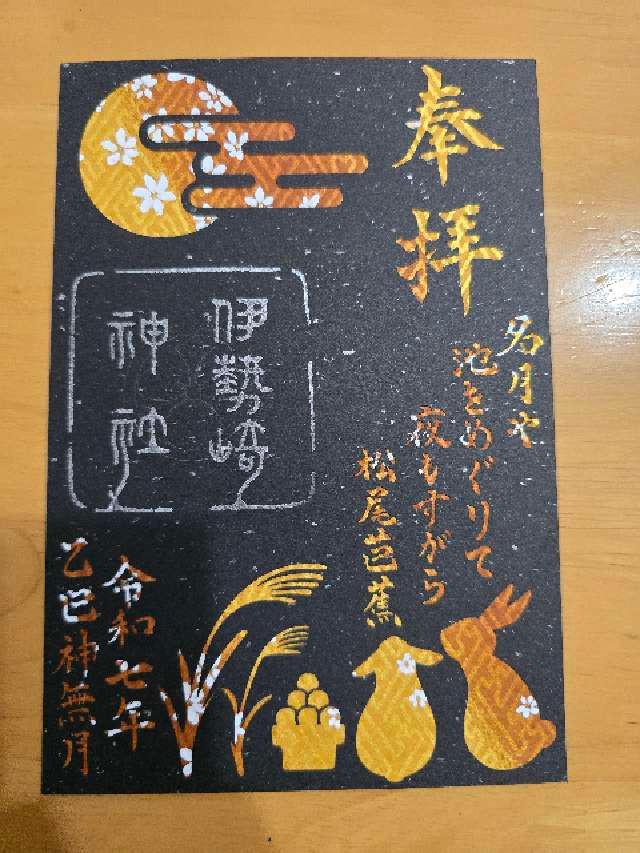 奉拝
名月や
池をめぐりて
夜もすがら
松尾芭蕉
伊勢崎
神社
令和七年
乙巳神無月